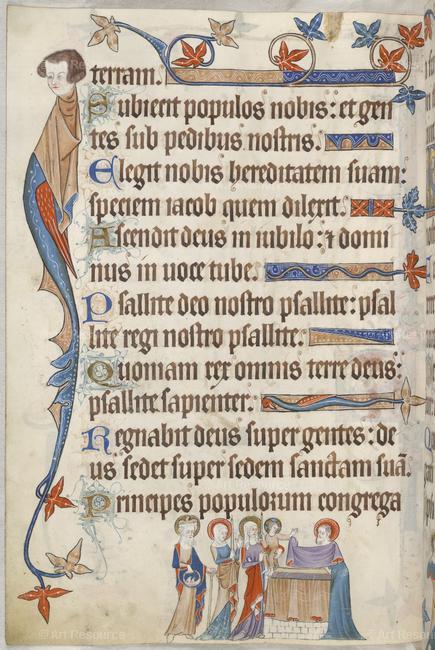 terram.
Subiecit populos nobis: et gen
tes sub pedibus nostris.
Elegit nobis hereditatem suam:
speciem iacob quem dilexit.
Ascendit deus in iubilo: ⁊ domi
nus in uoce tube.
Psallite deo nostro psallite: psal
lite regi nostro psallite.
Quoniam rex omnis terre deus:
psallite sapienter.
Regnabit deus super gentes: de
us sedet super sedem sanctam suā.
Principes populorum congrega
© Art Resource
© Art Resource